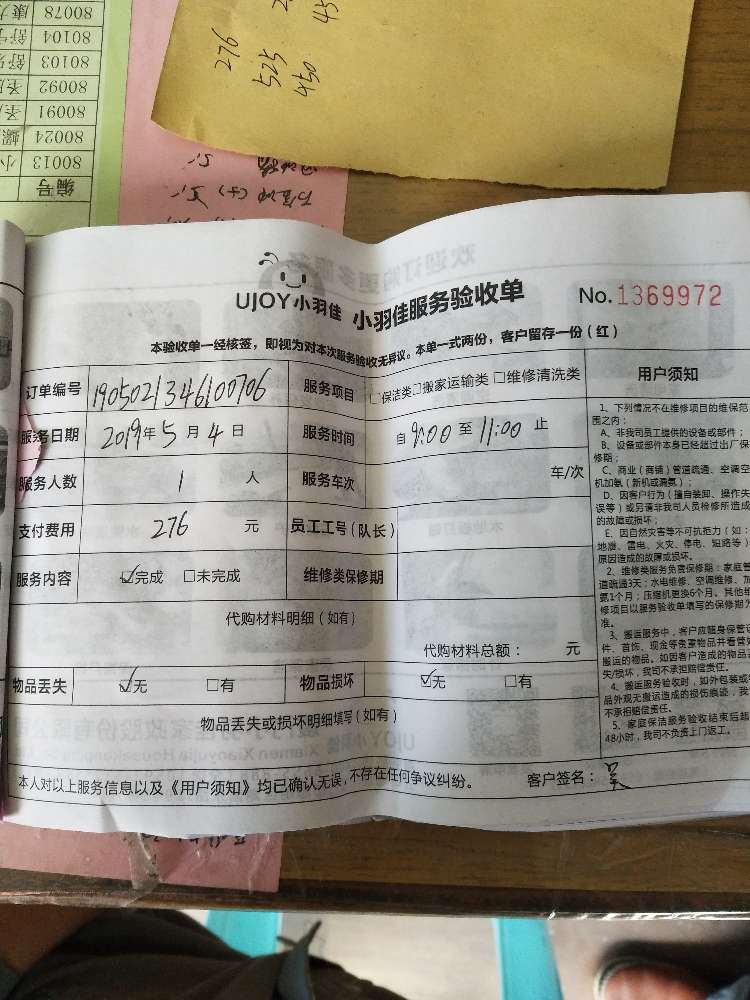 276
525
450
45
80078
80104
80103
80092
80091
80024
80013
编号
UJOY小羽佳 小羽佳服务验收单 No.1369972
本验收单一经核签，即视为对本次服务验收无异议。本单一式两份，客户留存一份（红）
订单编号 1905021346100706 服务项目 □保洁类□搬家运输类 □维修清洗类
服务日期 2019年 5 月 4 日 服务时间 自 9:00 至 11:00 止
服务人数 1 人 服务车次 车/次
支付费用 276 元 员工工号（队长）
服务内容 ☑完成 □未完成 维修类保修期
代购材料明细（如有）
代购材料总额： 元
物品丢失 ☑无 □有 物品损坏 ☑无 □有
物品丢失或损坏明细填写（如有）
本人对以上服务信息以及《用户须知》均已确认无误，不存在任何争议纠纷。 客户签名：
用户须知
1、下列情况不在维修项目的维保范
围之内：
A、非我司员工提供的设备或部件；
B、设备或部件本身已经超过出厂保
修期；
C、商业（商铺）管道疏通、空调空
机加氨（新机或漏氨）；
D、因客户行为（擅自装卸、操作失
误等）或另请非我司人员检修所造成
的故障或损坏；
E、因自然灾害等不可抗拒力（如：
地震、雷电、火灾、停电、短路等）
原因造成的故障或损坏。
2、维修类服务免费保修期：家庭管
道疏通3天；水电维修、空调维修、加
氨1个月；压缩机更换6个月。其他维
修项目以服务验收单填写的保修期为
准。
3、搬运服务中，客户应随身保管证
件、首饰、现金等贵重物品并看管好
搬运的物品。如因客户造成的物品丢
失/损坏，我司不承担赔偿责任。
4、搬运服务验收时，如外包装或物
品外观无搬运造成的损伤痕迹，我司
不承担赔偿责任。
5、家庭保洁服务验收结束后超
48小时，我司不负责上门返工。